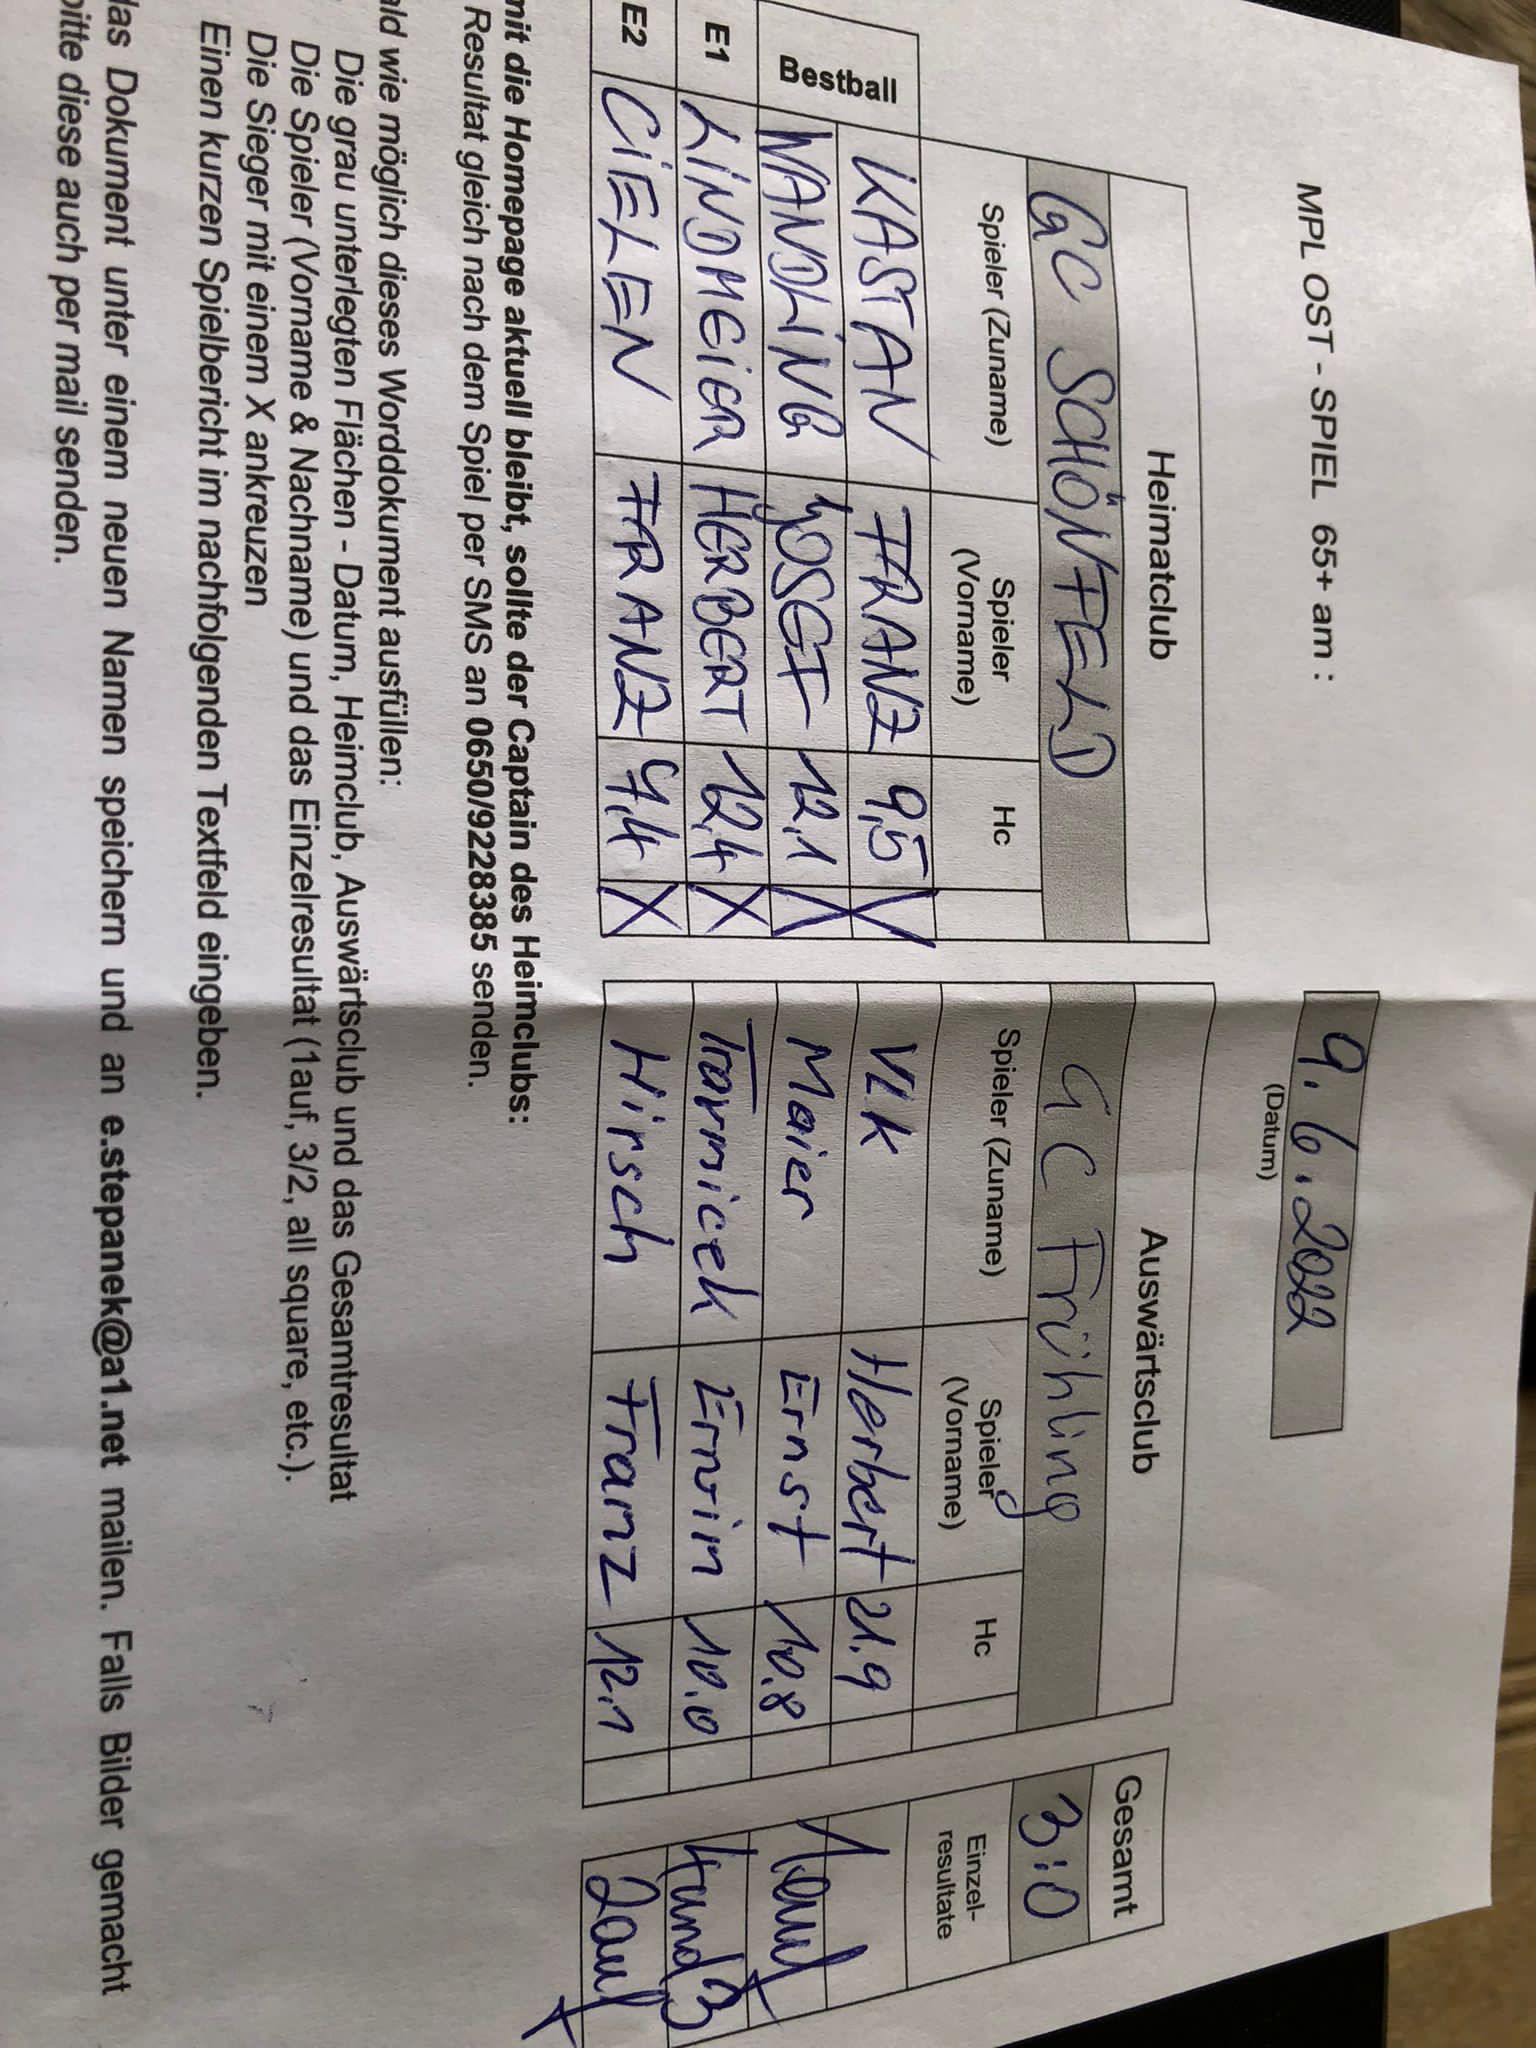 MPL OST - SPIEL 65+ am :
9.6.2022
(Datum)
Heimatclub
Auswärtsclub
Gesamt
GC SCHÖNFELD
GC Frühling
3:0
Spieler (Zuname)
Spieler (Vorname)
Hc
Spieler (Zuname)
Spieler (Vorname)
Hc
Einzel-resultate
Bestball
KASTAN FRANZ 9,5 X
VLK Herbert 21,9
WANDLING JOSEF 12,1 X
Maier Ernst 10.8
1 auf
E1 LINDMEIER HERBERT 12,4 X
Travnicek Erwin 10.0
4 und 3
E2 CIELEN FRANZ 9,4 X
Hirsch Franz 12.1
2 auf
mit die Homepage aktuell bleibt, sollte der Captain des Heimclubs:
Resultat gleich nach dem Spiel per SMS an 0650/9228385 senden.
ald wie möglich dieses Worddokument ausfüllen:
Die grau unterlegten Flächen - Datum, Heimclub, Auswärtsclub und das Gesamtresultat
Die Spieler (Vorname & Nachname) und das Einzelresultat (1auf, 3/2, all square, etc.).
Die Sieger mit einem X ankreuzen
Einen kurzen Spielbericht im nachfolgenden Textfeld eingeben.
das Dokument unter einem neuen Namen speichern und an e.stepanek@a1.net mailen. Falls Bilder gemacht
bitte diese auch per mail senden.